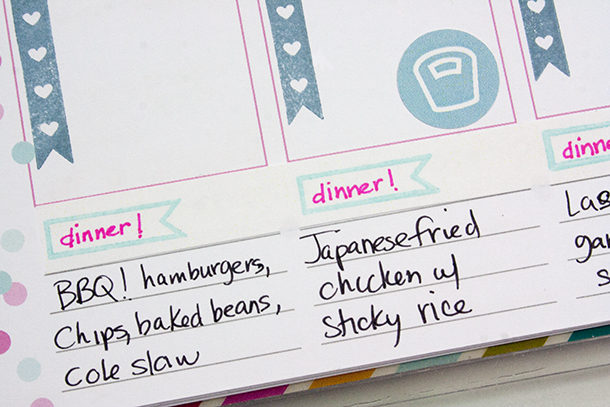 dinner!
BBQ! hamburgers,
Chips, baked beans,
Cole slaw
dinner!
Japanese fried
chicken w/
Sticky rice